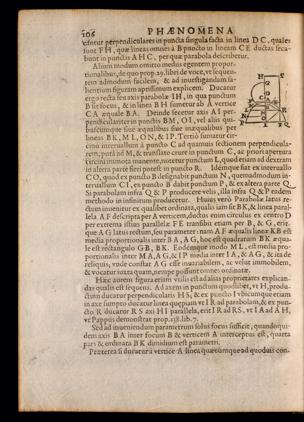 106 PHÆNOMENA
cantur perpendiculares in puncta singula facta in linea DC, quales
sunt FH, quæ lineas omnes à B puncto in lineam CE ductas seca-
bunt in punctis AHC, per quæ parabola describetur.
Alium modum omitto medus egentem propor-
tionalibus, de quo prop. 29. libri de voce, vt sequen-
tem admodum facilem, & ad inuestigandum fa-
lientium figuram aptissimum explicem. Ducatur
ergo recta seu axis parabolæ IH, in qua punctum
B sit focus, & in linea BH sumetur ab A vertice
CA æquale BA. Deinde secetur axis AI per-
pendiculariter in punctis BM, OI, vel aliis qui-
buscumque siue æqualibus siue inæqualibus per
lineas BK, ML, ON, & IP. Tertiò sumatur cir-
cino interuallum à puncto C ad quamuis sectionem perpendicula-
rem, putà ad M, & translato crure in punctum C, ac priori apertura
circini immota manente, notetur punctum L, quod etiam ad dextram
in altera parte fieri potest in puncto R. Idémque fiat ex interuallo
CO, quod ex puncto B designabit punctum N, quemadmodum in-
teruallum CI, ex puncto B dabit punctum P, & ex altera parte Q.
Si parabolam infra Q & P producere velis, alia infra Q & P eadem
methodo in infinitum producetur. Huius verò Parabolæ latus re-
ctum inuenitur ex qualibet ordinata, qualis iam sit BK, & linea paral-
lela AF descripta per A verticem, ductus enim circulus ex centro D
per extrema istius parallelæ FE transibit etiam per B, & G, erit-
que AG latus rectum, seu parameter: nam AF æqualis lineæ KB est
media proportionalis inter BA, AG, hoc est quadratum BK æqua-
le est rectangulo GB, BK. Eodemque modo ML, est media pro-
portionalis inter MA, AG, & IP media inter IA, & AG, & ita de
reliquis, vnde constat AG esse inuariabilem, ac velut immobilem,
& vocatur iuxta quam, nempe possunt omnes ordinatæ.
Hæc autem figura etiam vtilis est ad alias proprietates explican-
das qualis est sequens. Ad axem in punctum quodlibet, vt H, produ-
ctum ducatur perpendicularis HS, & ex puncto I vbicumque etiam
in axe sumpto ducatur linea quæpiam vt IR ad parabolam, & ex pun-
cto R ducatur RS axi HI parallela, erit IR ad RS, vt IA ad AH,
vt Pappus demonstrat prop. 238. lib. 7.
Sed ad inueniendum parametrum solus focus sufficit, quandoqui-
dem axis BA inter focum B & verticem A interceptus est, quarta
pars & ordinata BK dimidium est parametri.
Præterea si ducatur à vertice A linea quæcumque ad quoduis con-